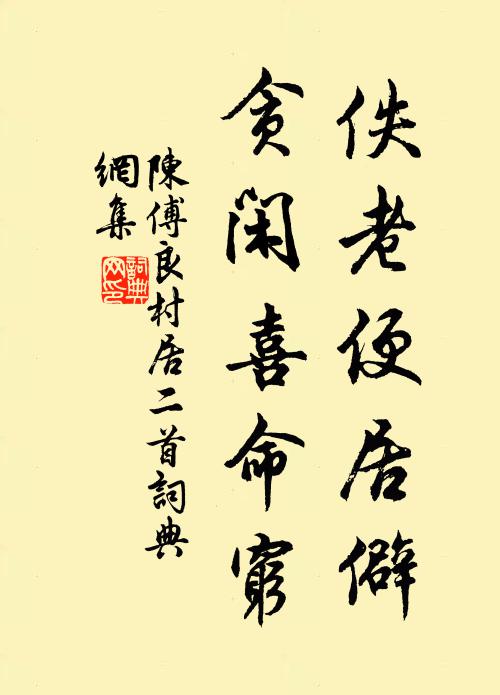 佚老便居僻
貪閑喜命窮
陳傅良村居二首詞典
網集
詞典
网印